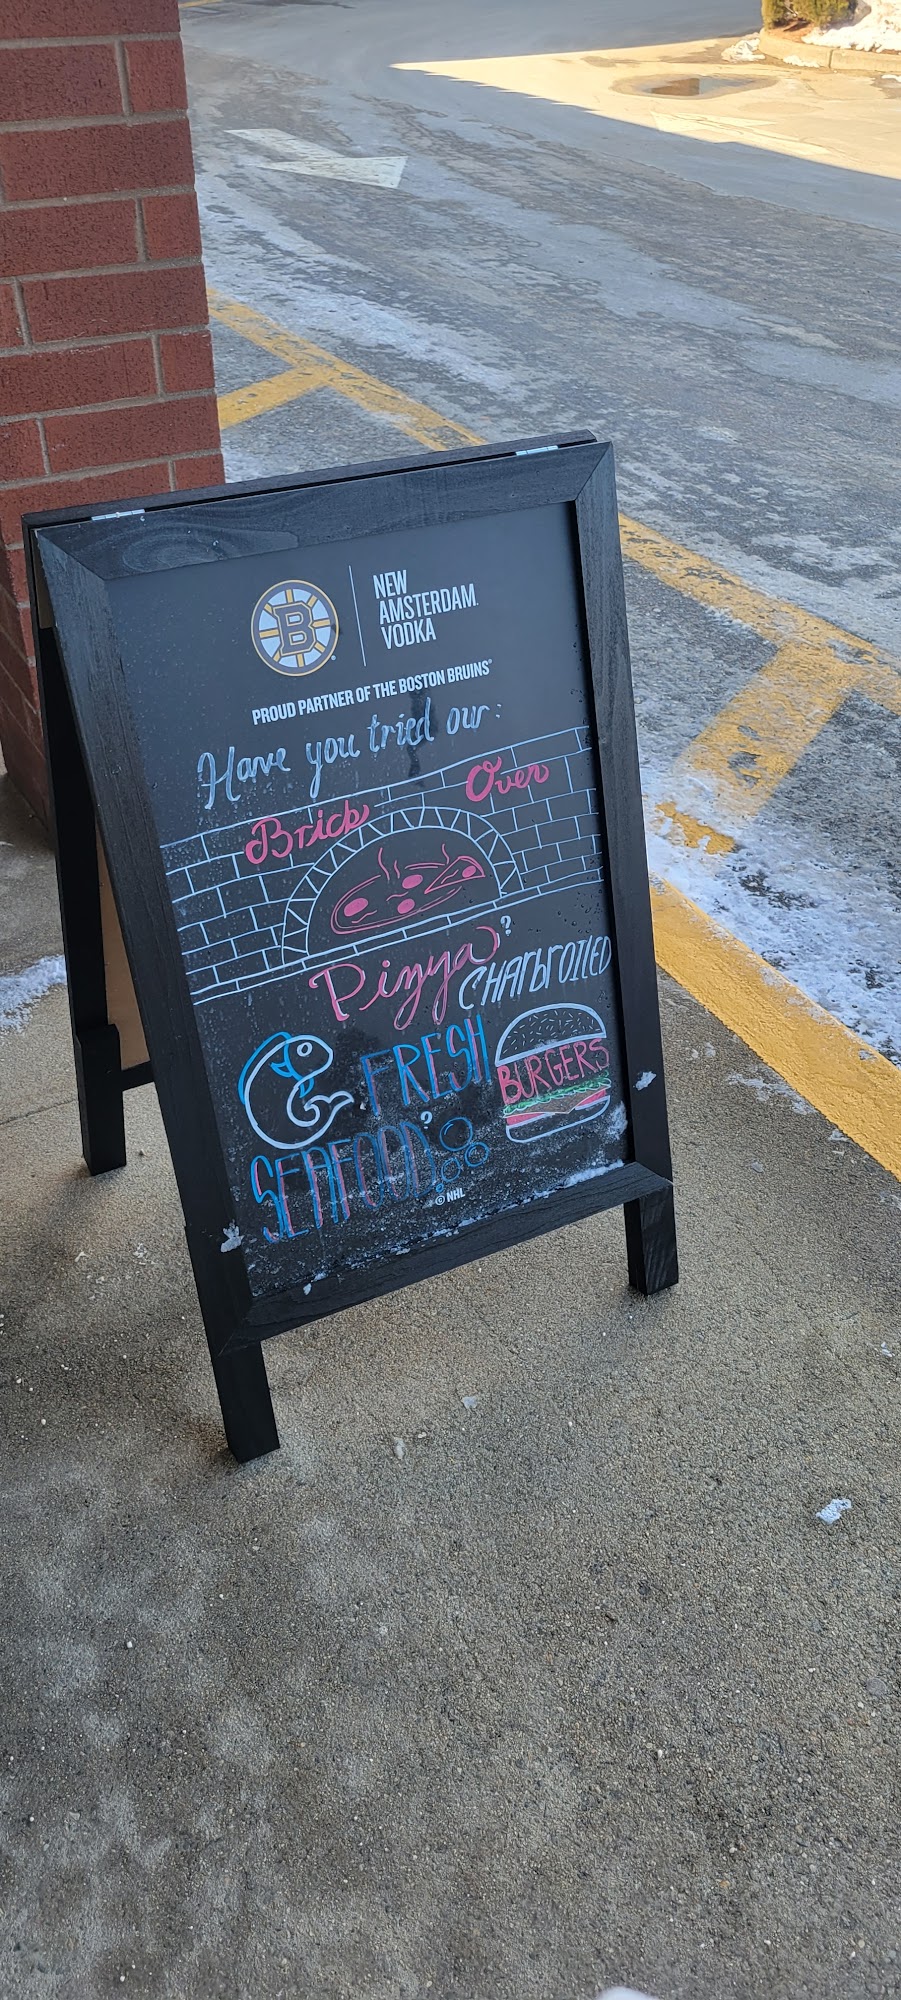 B
NEW
AMSTERDAM
VODKA
PROUD PARTNER OF THE BOSTON BRUINS®
Have you tried our:
Brick Oven
Pizza?
CHArbroIlED
BURGERS
FRESH
SEAFOOD?
© NHL